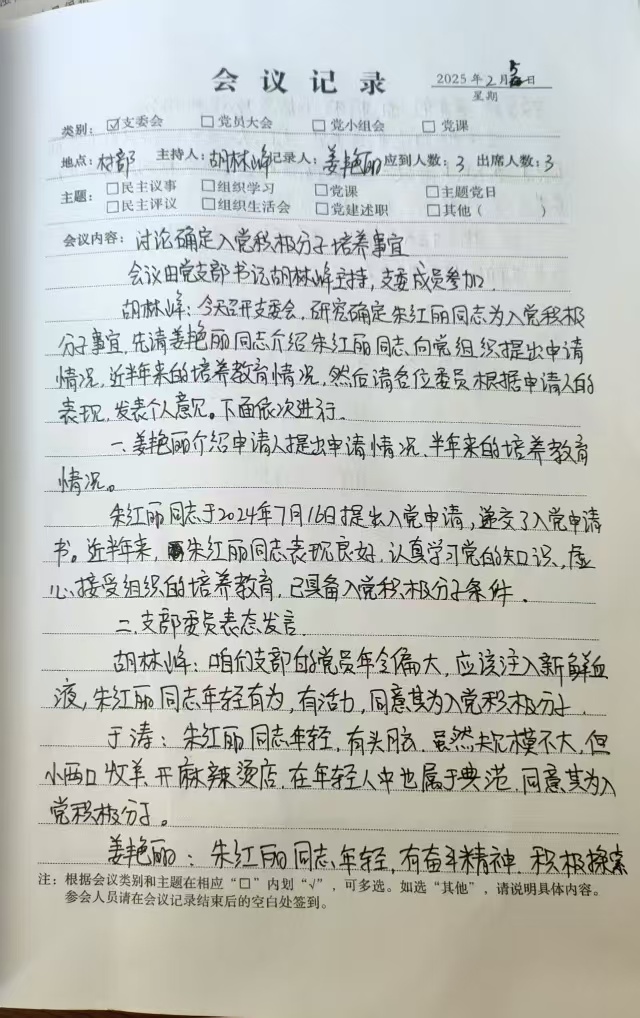 会议记录
2025年2月5日
星期
类别：☑支委会 □党员大会 □党小组会 □党课
地点：村部 主持人：胡林峰 记录人：姜艳丽 应到人数：3 出席人数：3
主题：□民主议事 □组织学习 □党课 □主题党日
□民主评议 □组织生活会 □党建述职 □其他（ ）
会议内容：讨论确定入党积极分子培养事宜
会议由党支部书记胡林峰主持，支委成员参加．
胡林峰：今天召开支委会，研究确定朱红丽同志为入党积极
分子事宜，先请姜艳丽同志介绍朱红丽同志向党组织提出申请
情况，近半年来的培养教育情况，然后请各位委员根据申请人的
表现，发表个人意见。下面依次进行．
一．姜艳丽介绍申请人提出申请情况、半年来的培养教育
情况。
朱红丽同志于2024年7月16日提出入党申请，递交了入党申请
书。近半年来，朱红丽同志表现良好，认真学习党的知识，虚
心接受组织的培养教育，已具备入党积极分子条件．
二．支部委员表态发言．
胡林峰：咱们支部的党员年令偏大，应该注入新鲜血
液，朱红丽同志年轻有为，有活力，同意其为入党积极分子．
于涛：朱红丽同志年轻，有头脑．虽然规模不大，但
小两口牧羊、开麻辣烫店，在年轻人中也属于典范，同意其为入
党积极分子。
姜艳丽：朱红丽同志年轻，有奋斗精神，积极探索
注：根据会议类别和主题在相应“□”内划“√”，可多选。如选“其他”，请说明具体内容。
参会人员请在会议记录结束后的空白处签到。